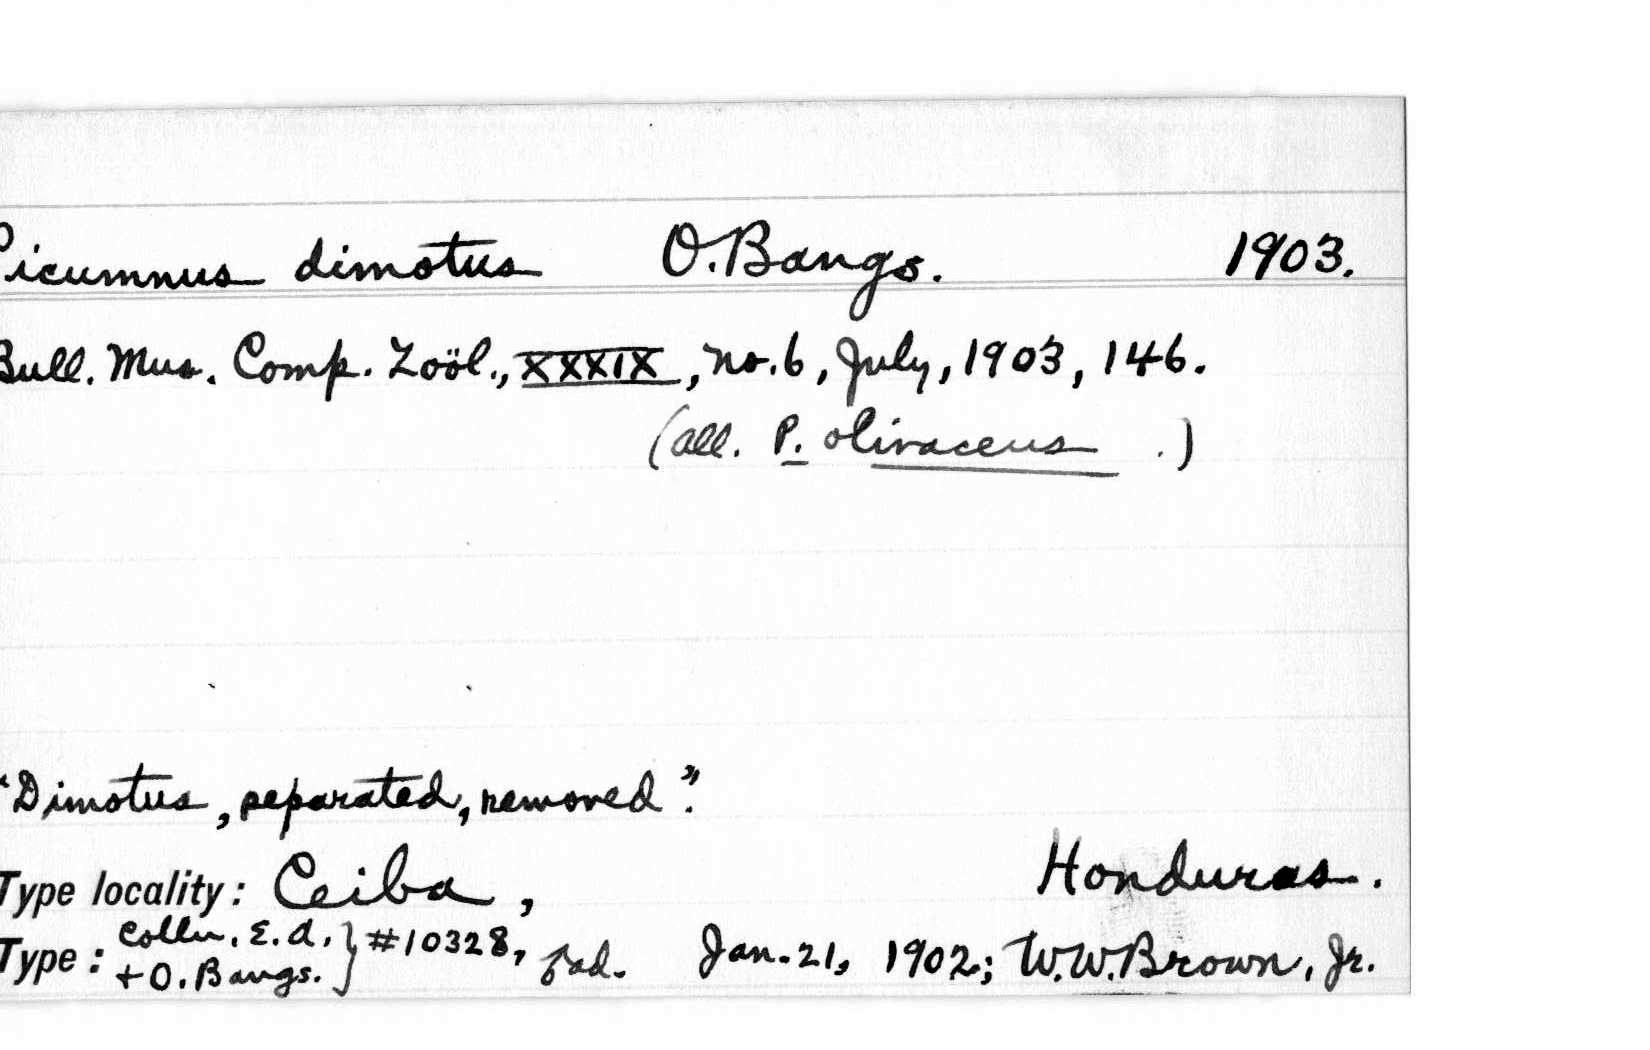 Picumnus dimotus O. Bangs. 1903.
Bull. Mus. Comp. Zoöl., XXXIX, no. 6, July, 1903, 146.
(all. P. olivaceus .)
"Dimotus, separated, removed".
Type locality: Ceiba, Honduras.
Type: Colln. E. A. + O. Bangs. } #10328, ad. Jan. 21, 1902; W. W. Brown, Jr.